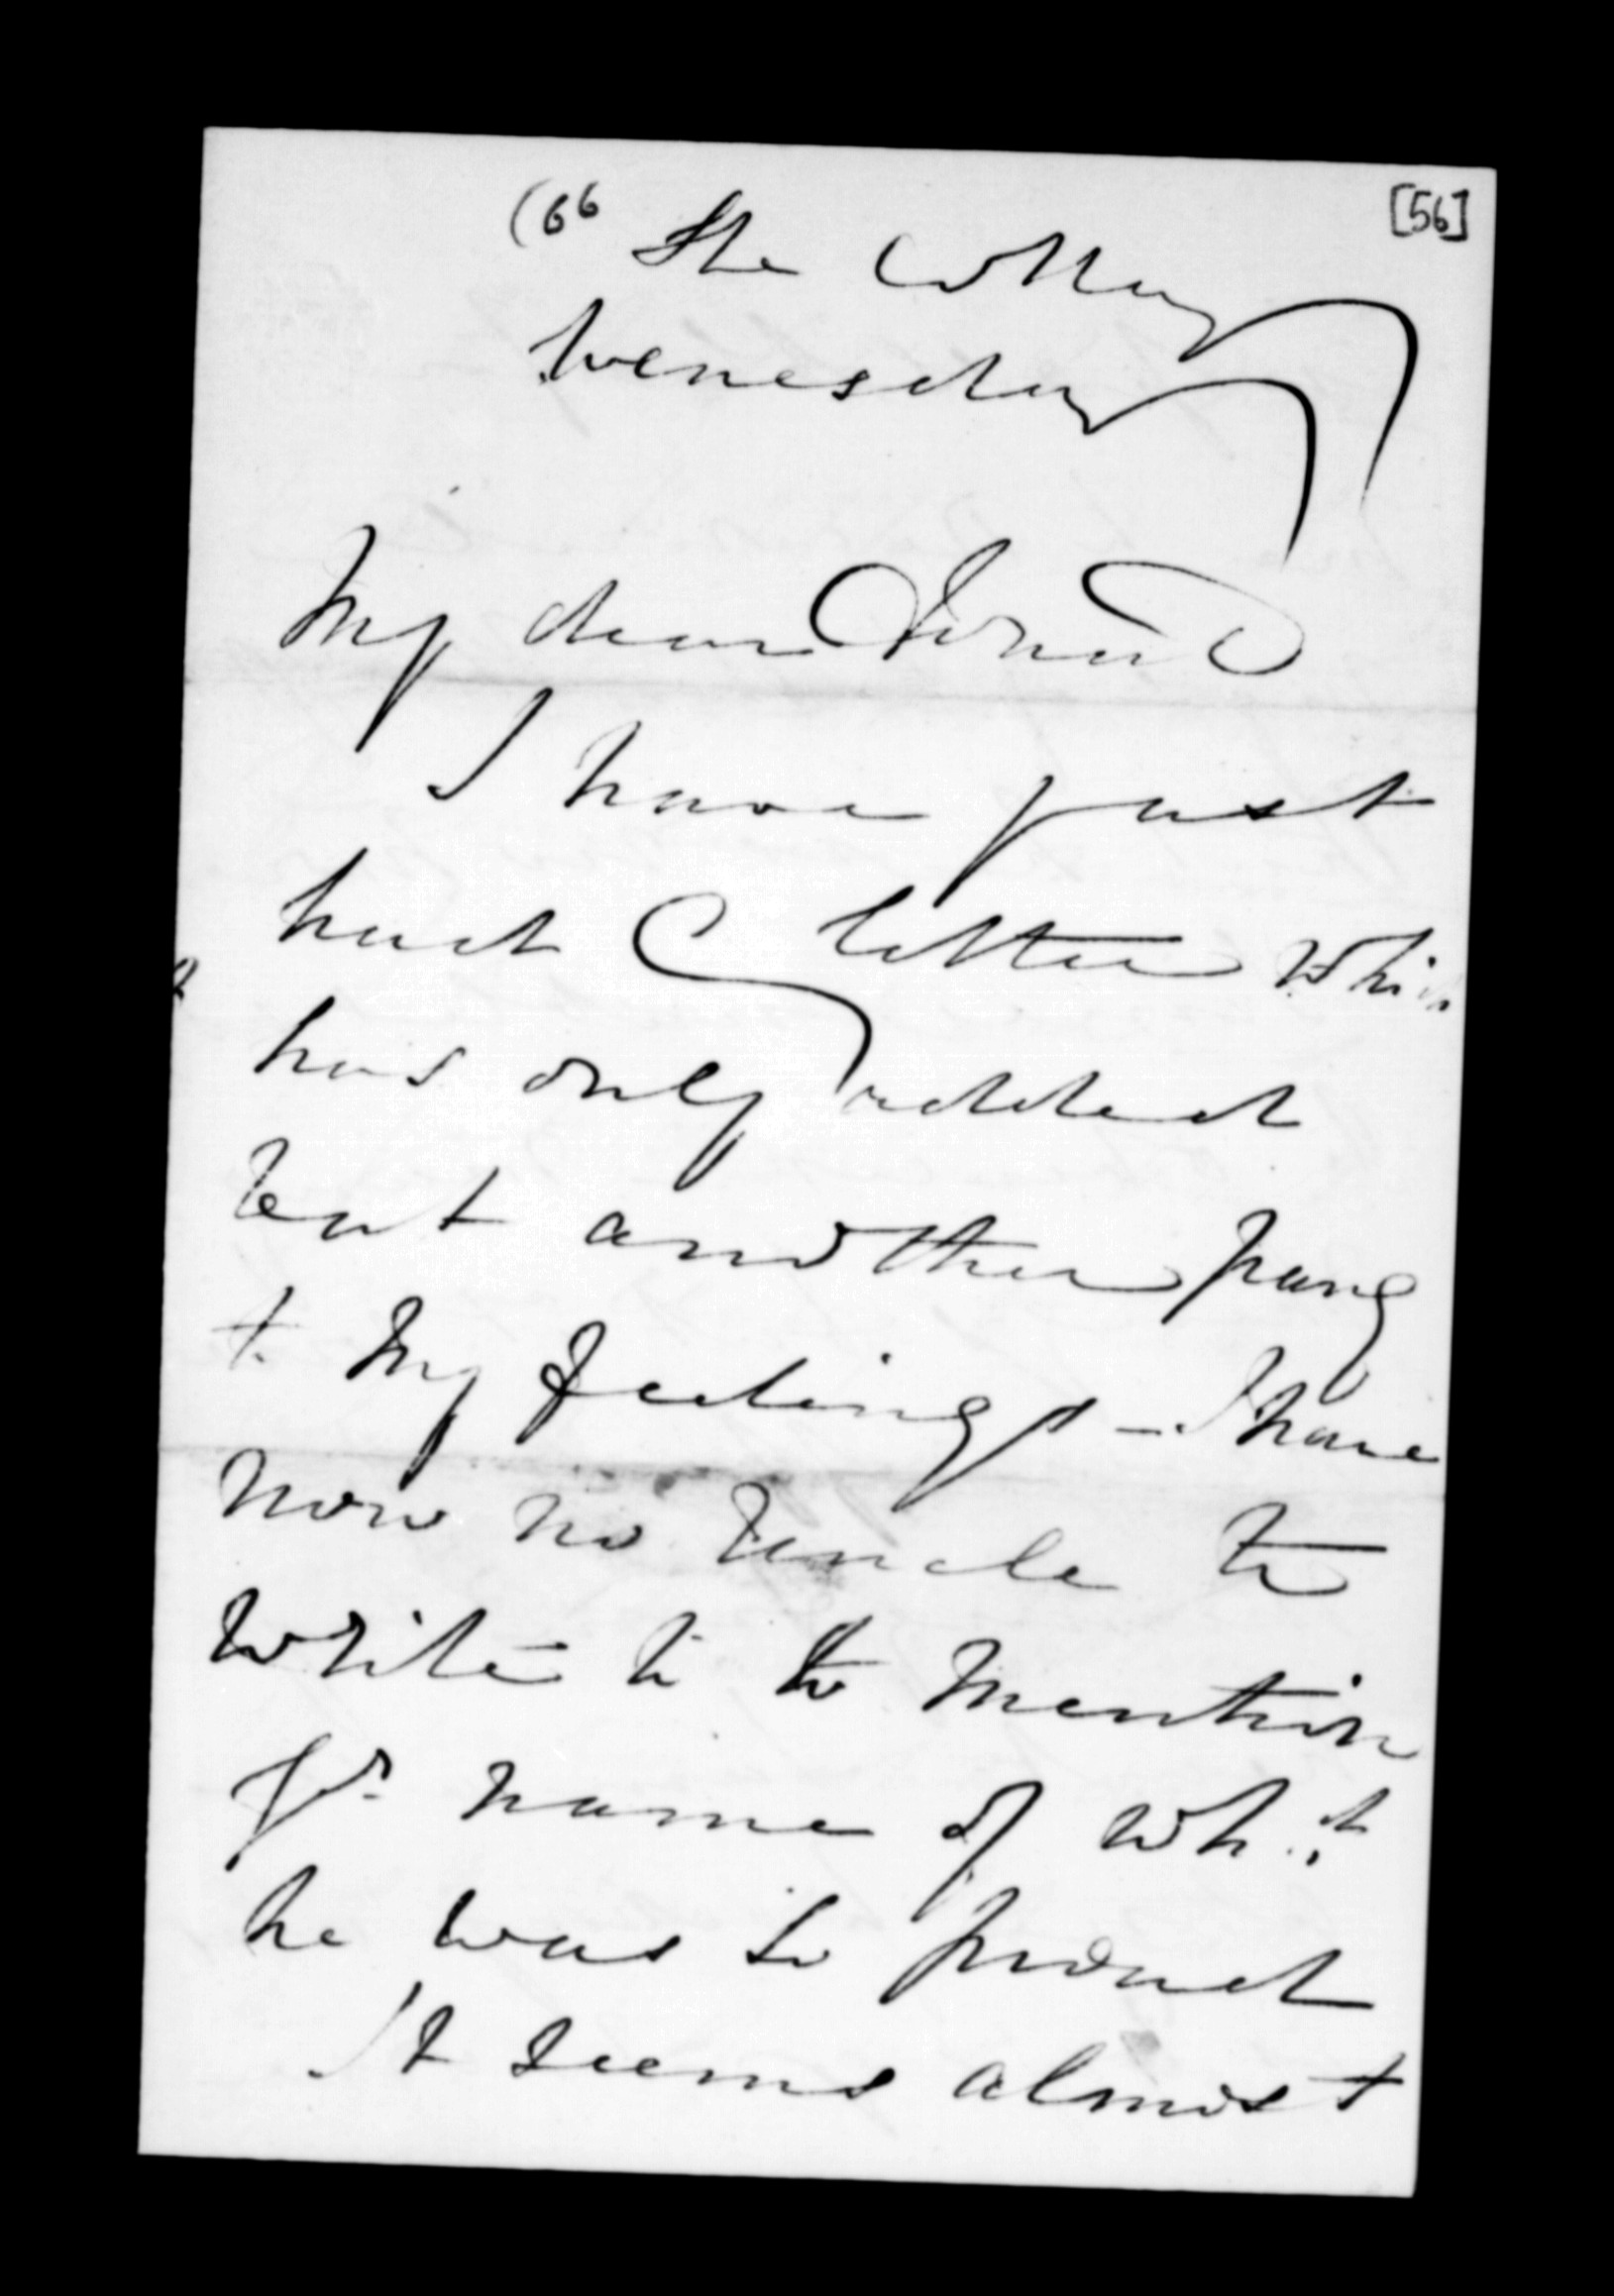 (66 [56]
The Cottage
Wenesday
My dear Donald
I have just
had a letter which
has only added
but another pang
to my feelings - I have
now no Uncle to
write to to mention
yr name of wh.
he was so proud
It seems almost